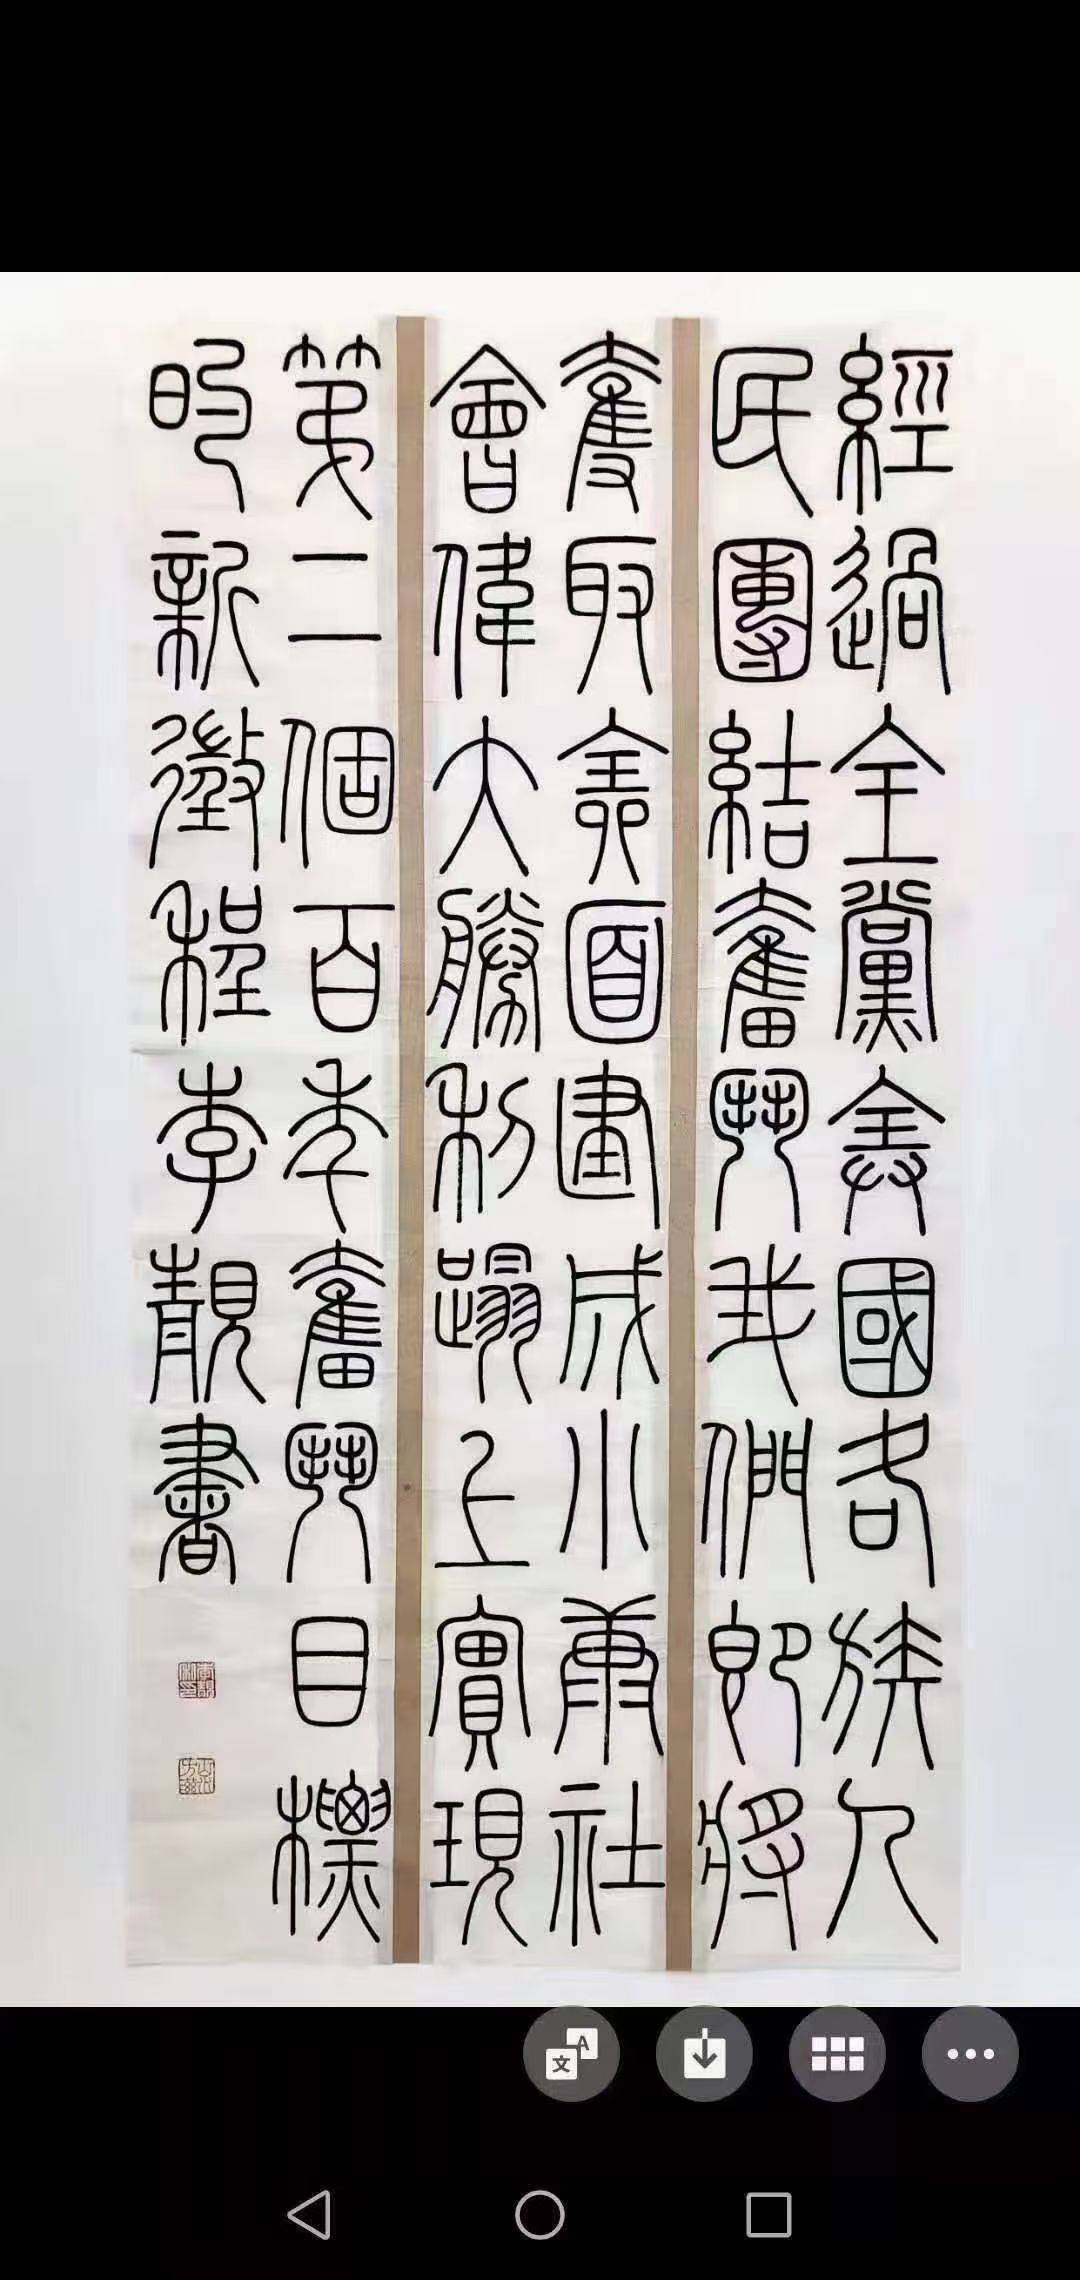 經過全黨全國各族人
民團結奮鬥我們即將
奪取全面建成小康社
會偉大勝利蹋上實現
第二個百年奮鬥目標
的新徵程李靚書
文 A